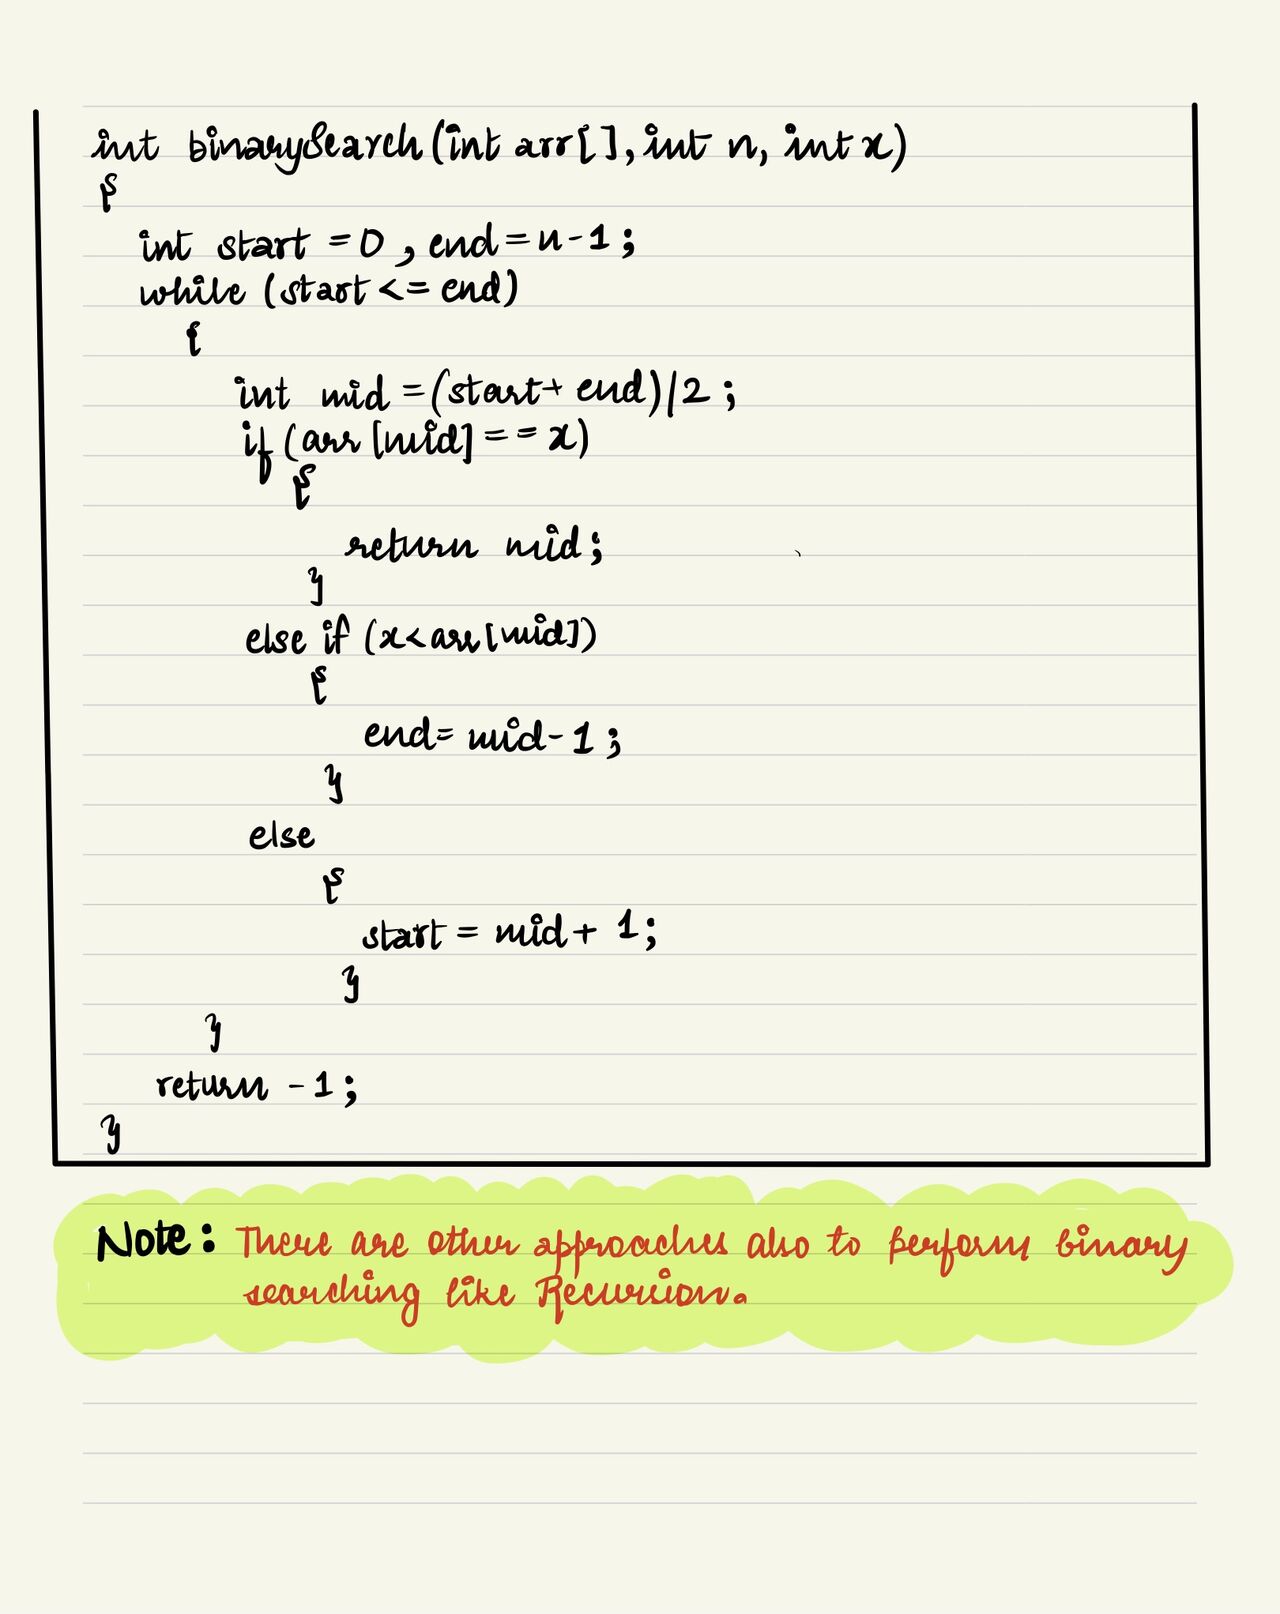 int binarySearch(int arr[], int n, int x)
{
int start = 0, end = n-1;
while (start <= end)
{
int mid = (start + end)/2;
if (arr[mid] == x)
{
return mid;
}
else if (x < arr[mid])
{
end = mid - 1;
}
else
{
start = mid + 1;
}
}
return -1;
}
Note: There are other approaches also to perform binary
searching like Recursion.